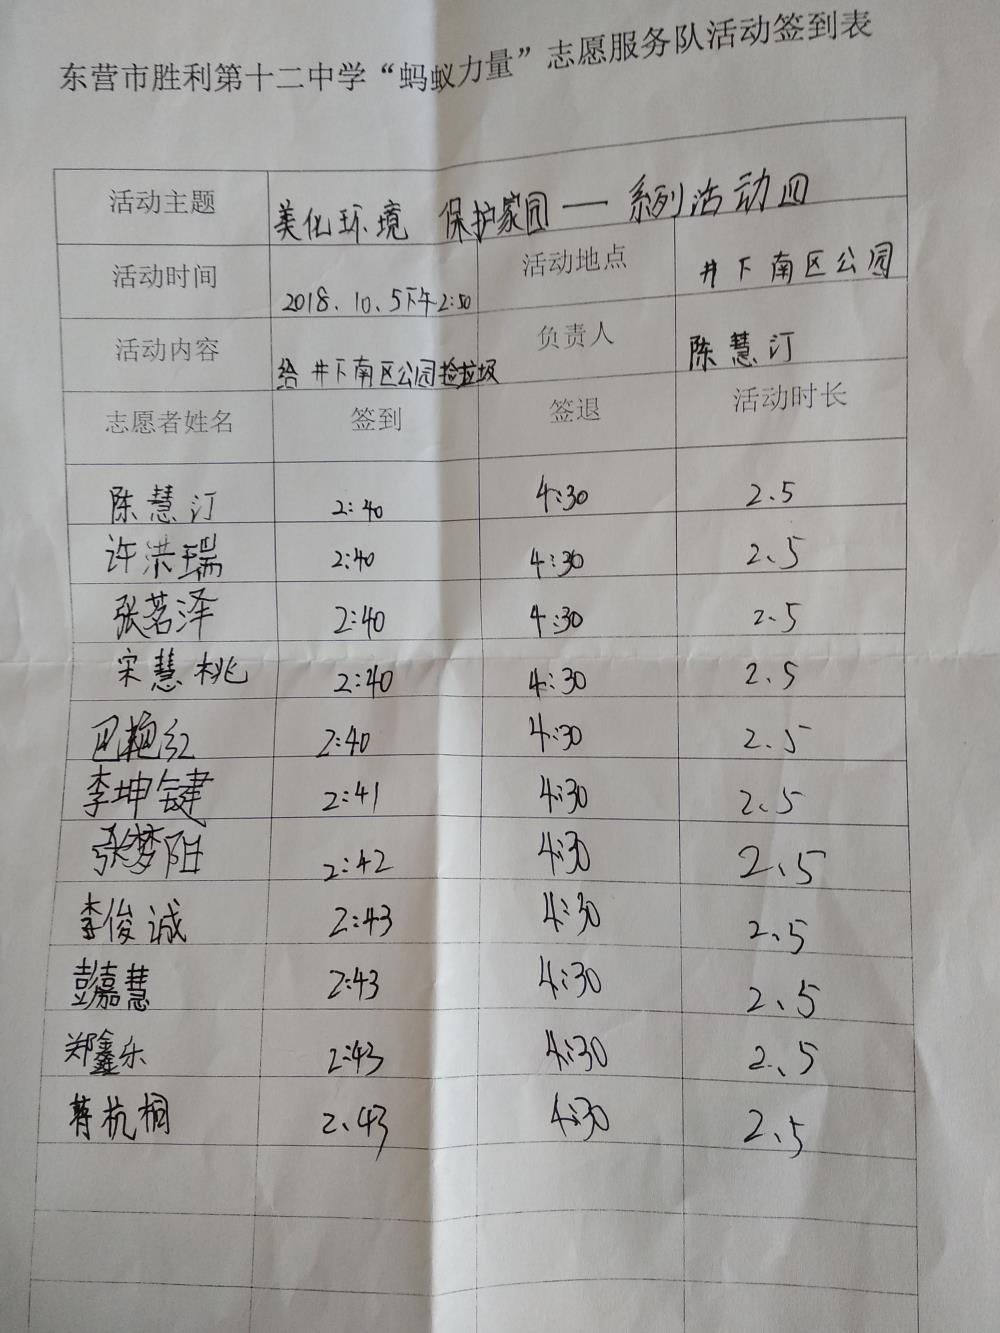 东营市胜利第十二中学“蚂蚁力量”志愿服务队活动签到表
活动主题 美化环境 保护家园一 系列活动四
活动时间 2018.10.5下午2:50 活动地点 井下南区公园
活动内容 给井下南区公园捡垃圾 负责人 陈慧汀
志愿者姓名 签到 签退 活动时长
陈慧汀 2:40 4:30 2.5
许洪瑞 2:40 4:30 2、5
张茗泽 2:40 4:30 2、5
宋慧桃 2:40 4:30 2.5
巴艳红 2:40 4:30 2.5
李坤键 2:41 4:30 2、5
张梦阳 2:42 4:30 2、5
李俊诚 2:43 4:30 2、5
彭嘉慧 2:43 4:30 2、5
郑鑫乐 2:43 4:30 2、5
蒋杭桐 2、43 4:30 2、5